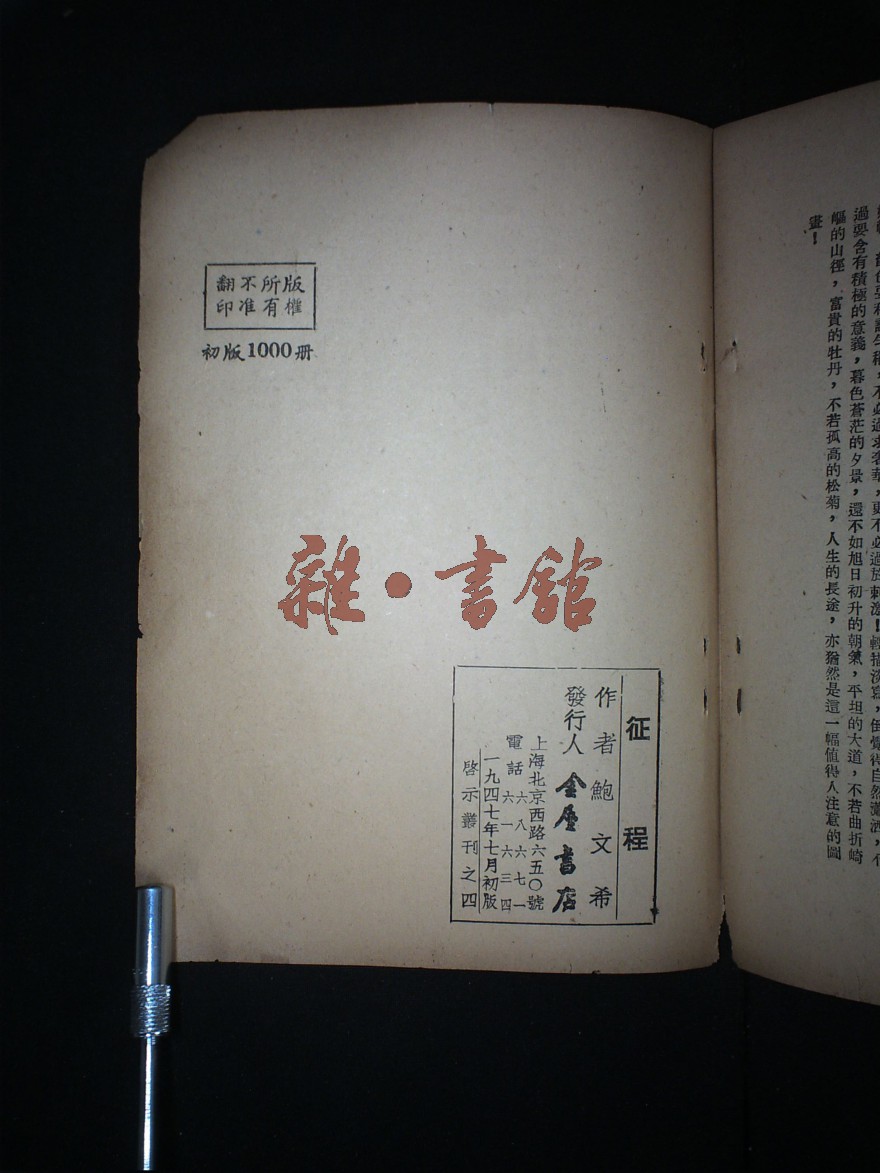 不必過求奢華，更不必過於刺激！輕描淡寫，但覺得自然瀟洒，不
過要含有積極的意義，暮色蒼茫的夕景，還不如旭日初升的朝氣，平坦的大道，不若曲折崎
嶇的山徑，富貴的牡丹，不若孤高的松菊，人生的長途，亦猶然是這一幅值得人注意的圖
畫！
版權
所有
不准
翻印
初版1000册
雜·書館
征程
作者鮑文希
發行人 金屋書店
上海北京西路六五〇號
電話 六八六七一
六一六三四
一九四七年七月初版
啓示叢刊之四